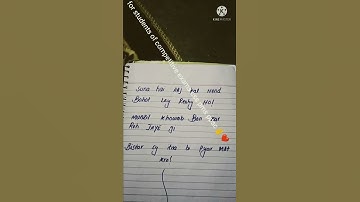 for students of competitive
KINEMASTER
Suna hai Aaj kal Neend
Bohat Ley Rahy Ho!
Manzil Khawab Ban kar
Reh Jaye gi
Bistar sy itna b Pyar Mat
kro!